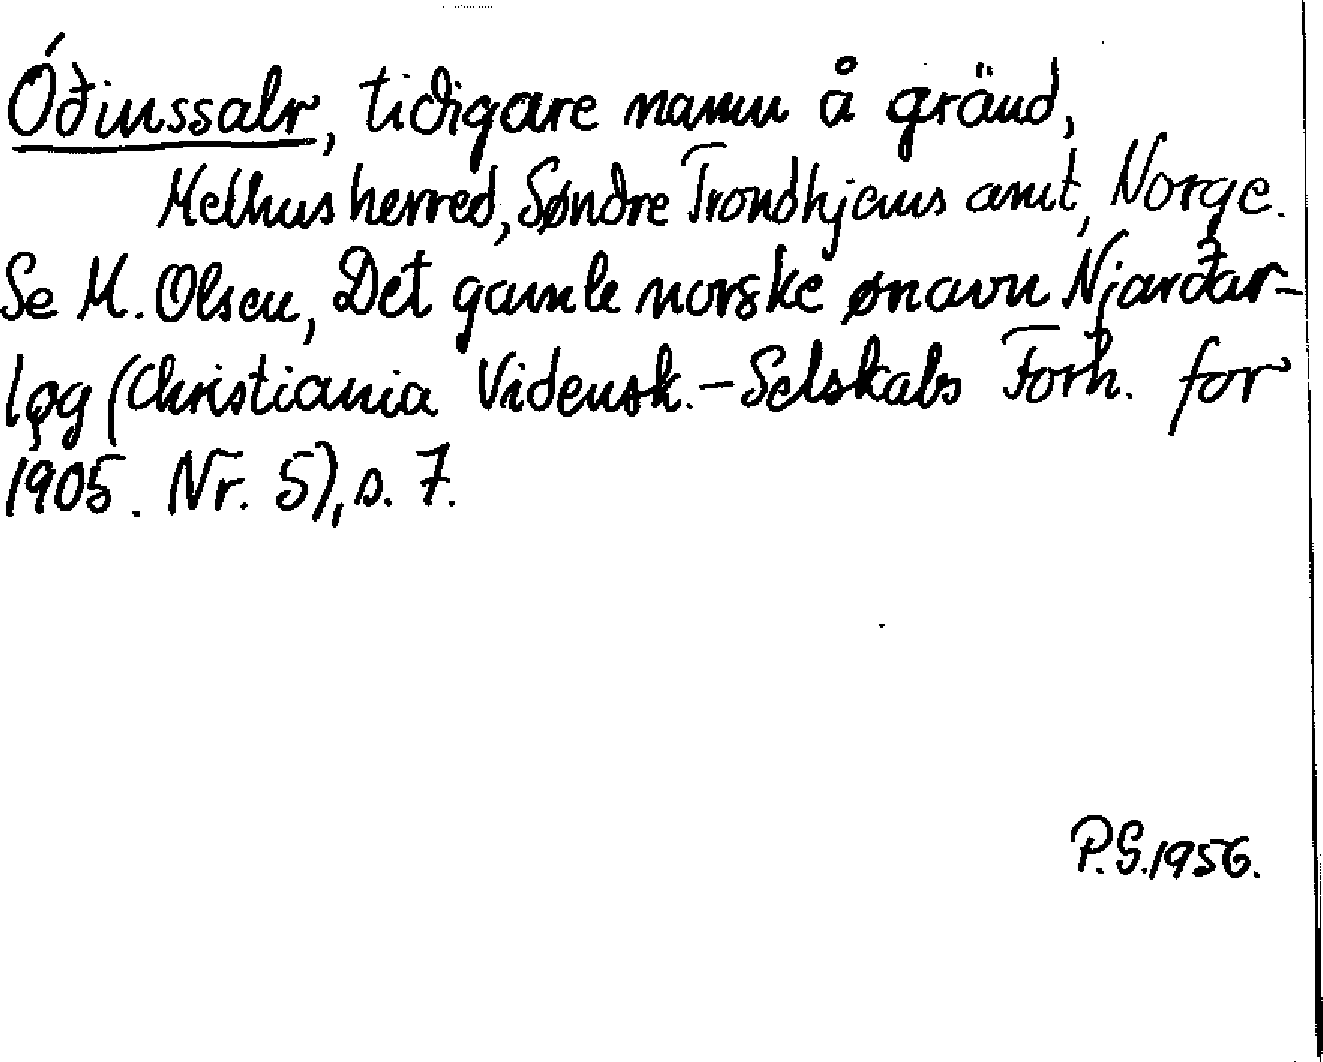 Óðinssalr, tidigare namn å gränd,
Melhus herred, Søndre Trondhjems amt, Norge.
Se M. Olsen, Det gamle norske ønavn Njarðar-
lǫg (Christiania Vidensk.-Selskabs Forh. for
1905. Nr. 5), s. 7.
P.G. 1956.